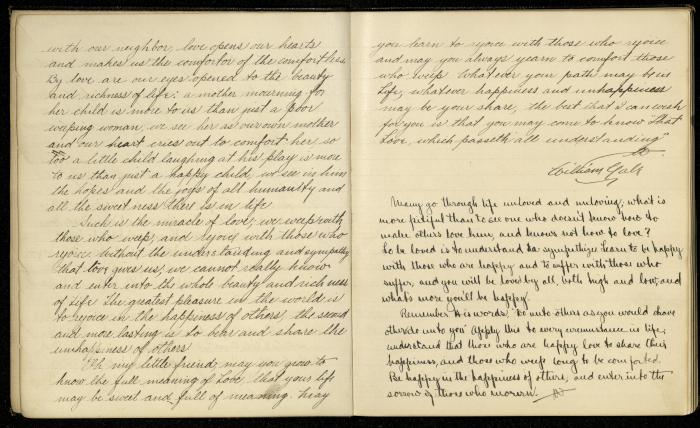 with our neighbor, love opens our hearts
and makes us the comfortor of the comfortless.
By love are our eyes opened to the beauty
and richness of life: a mother mourning for
her child is more to us than just a poor
weeping woman, we see her as our own mother
and our heart cries out to comfort her, so
too a little child laughing at his play is more
to us than just a happy child, we see in him
the hopes and the joys of all humanity and
all the sweetness there is in life.
Such is the miracle of love; we weep with
those who weep, and rejoice with those who
rejoice. Without the understanding and sympathy
that love gives us, we cannot really know
and enter into the whole beauty and richness
of life. The greatest pleasure in the world is
to rejoice in the happiness of others, the second
and more lasting is to bear and share the
unhappiness of others.
Oh my little friend, may you grow to
know the full meaning of Love, that your life
may be sweet and full of meaning. May
you learn to rejoice with those who rejoice
and may you always yearn to comfort those
who weep. Whatever your path may be in
life, whatever happiness and unhappiness
may be your share, the best that I can wish
for you is that you may come to know "that
Love, which passeth all understanding"
William Galt
Many go through life unloved and unloving; what is
more pitiful than to see one who doesn't know how to
make others love him, and knows not how to love?
To be loved is to understand to sympathize. Learn to be happy
with those who are happy and to suffer with those who
suffer, and you will be loved by all, both high and low, and
what's more you'll be happy.
Remember His words, "Do unto others as you would have
others do unto you". Apply this to every circumstance in life,
understand that those who are happy love to share their
happiness, and those who weep long to be comforted.
Be happy in the happiness of others, and enter into the
sorrow of those who mourn.